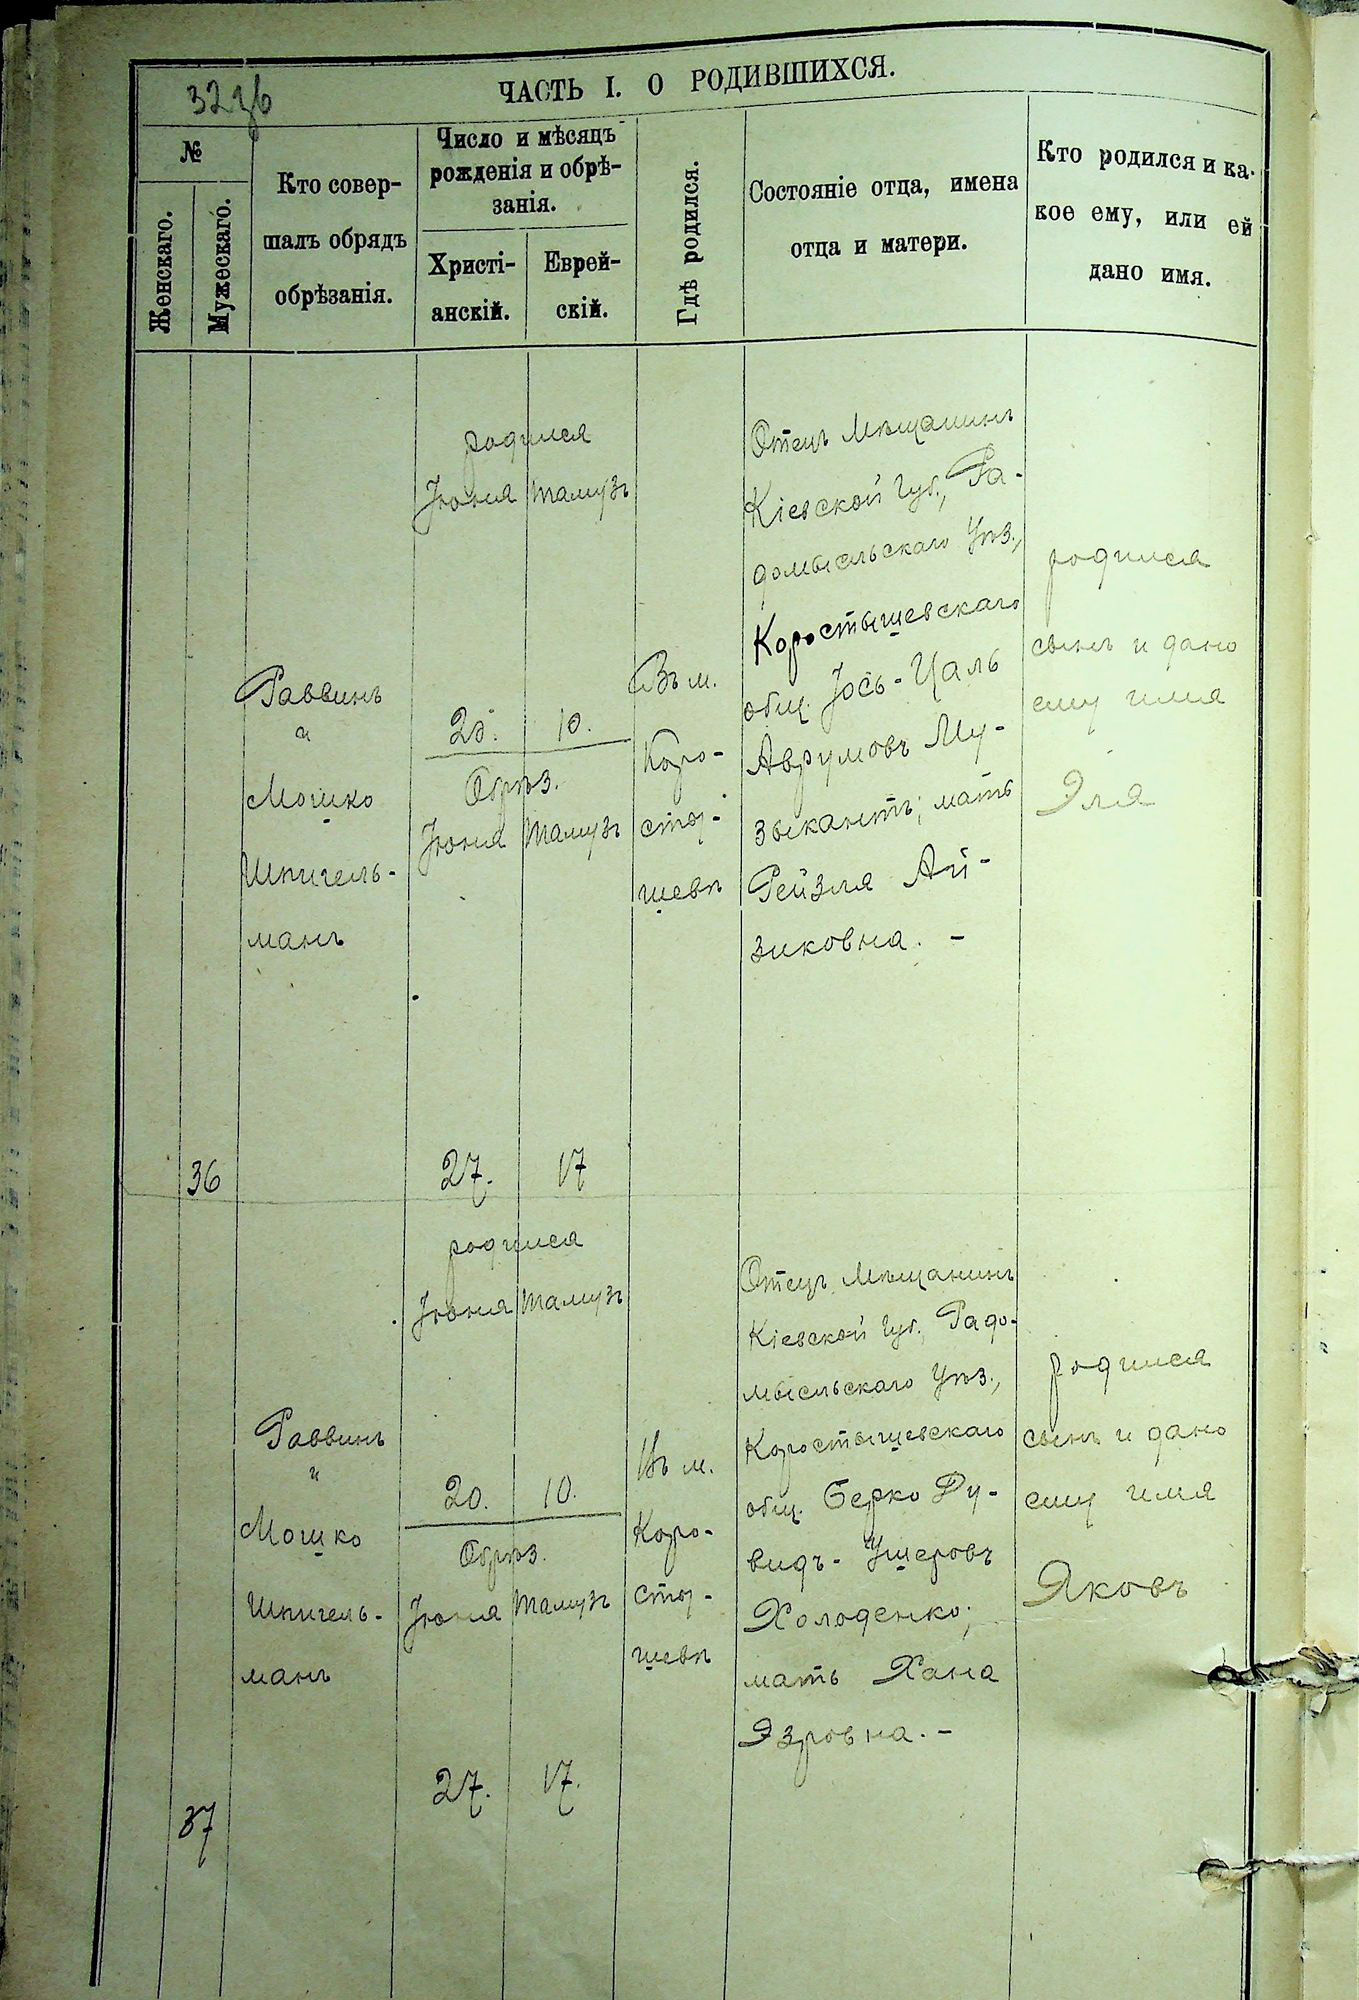 ЧАСТЬ I. О РОДИВШИХСЯ.
№
Женскаго.
Мужескаго.
Кто совер-
шалъ обрядъ
обрѣзанія.
Число и мѣсяцъ
рожденія и обрѣ-
занія.
Христі-
анскій.
Еврей-
скій.
Гдѣ родился.
Состояніе отца, имена
отца и матери.
Кто родился и ка-
кое ему, или ей
дано имя.
36
Раввинъ
и
Мошко
Шпигель-
манъ
родился
Іюня Тамузъ
20. 10.
Обрѣз.
Іюня Тамузъ
27. 17
Въ м.
Коро-
сты-
шевѣ
Отецъ Мѣщанинъ
Кіевской Губ., Ра-
домысльскаго Уѣз.,
Коростышевскаго
общ. Іось-Цаль
Аврумовъ Му-
зыкантъ; мать
Рейзля Ай-
зиковна. -
родился
сынъ и дано
ему имя
Эля
37
Раввинъ
и
Мошко
Шпигель-
манъ
родился
Іюня Тамузъ
20. 10.
Обрѣз.
Іюня Тамузъ
27. 17.
Въ м.
Коро-
сты-
шевѣ
Отецъ Мѣщанинъ
Кіевской Губ., Радо-
мысльскаго Уѣз.,
Коростышевскаго
общ. Берко Ду-
видъ-Ушеровъ
Холоденко;
мать Хана
Эзровна. -
родился
сынъ и дано
ему имя
Яковъ